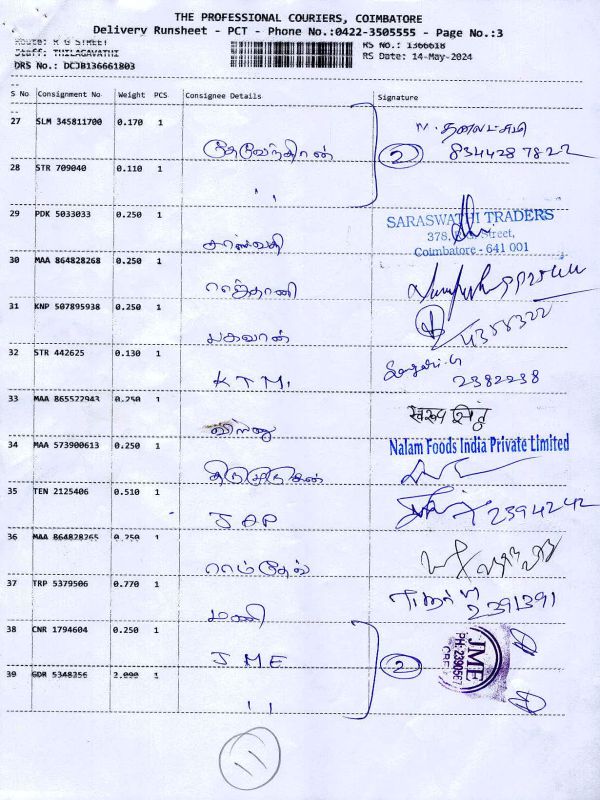 THE PROFESSIONAL COURIERS, COIMBATORE
Delivery Runsheet - PCT - Phone No.:0422-3505555 - Page No.:3
Route: R G STREET
RS No.: 1366618
Staff: THILAGAVATHI
RS Date: 14-May-2024
DRS No.: DCJB136661803
S No Consignment No Weight PCS Consignee Details Signature
27 SLM 345811700 0.170 1
28 STR 709040 0.110 1 2 8344287822
" 
29 PDK 5033033 0.250 1 SARASWATHI TRADERS
378, Street,
சரஸ்வதி Coimbatore - 641 001
30 MAA 864828268 0.250 1
ராஜ்தானி
31 KNP 507895938 0.250 1
பகவான் 4358322
32 STR 442625 0.130 1
KTM. 2382238
33 MAA 865522943 0.250 1
விஷ்ணு
34 MAA 573900613 0.250 1 Nalam Foods India Private Limited
திருமுருகன்
35 TEN 2125406 0.510 1
JAP 2394242
36 MAA 864828265 0.250 1
ராம்தேவ்
37 TRP 5379506 0.770 1
மணி 2391391
38 CNR 1794604 0.250 1
JME 2 JME
39 GDR 5348256 2.000 1
"
11